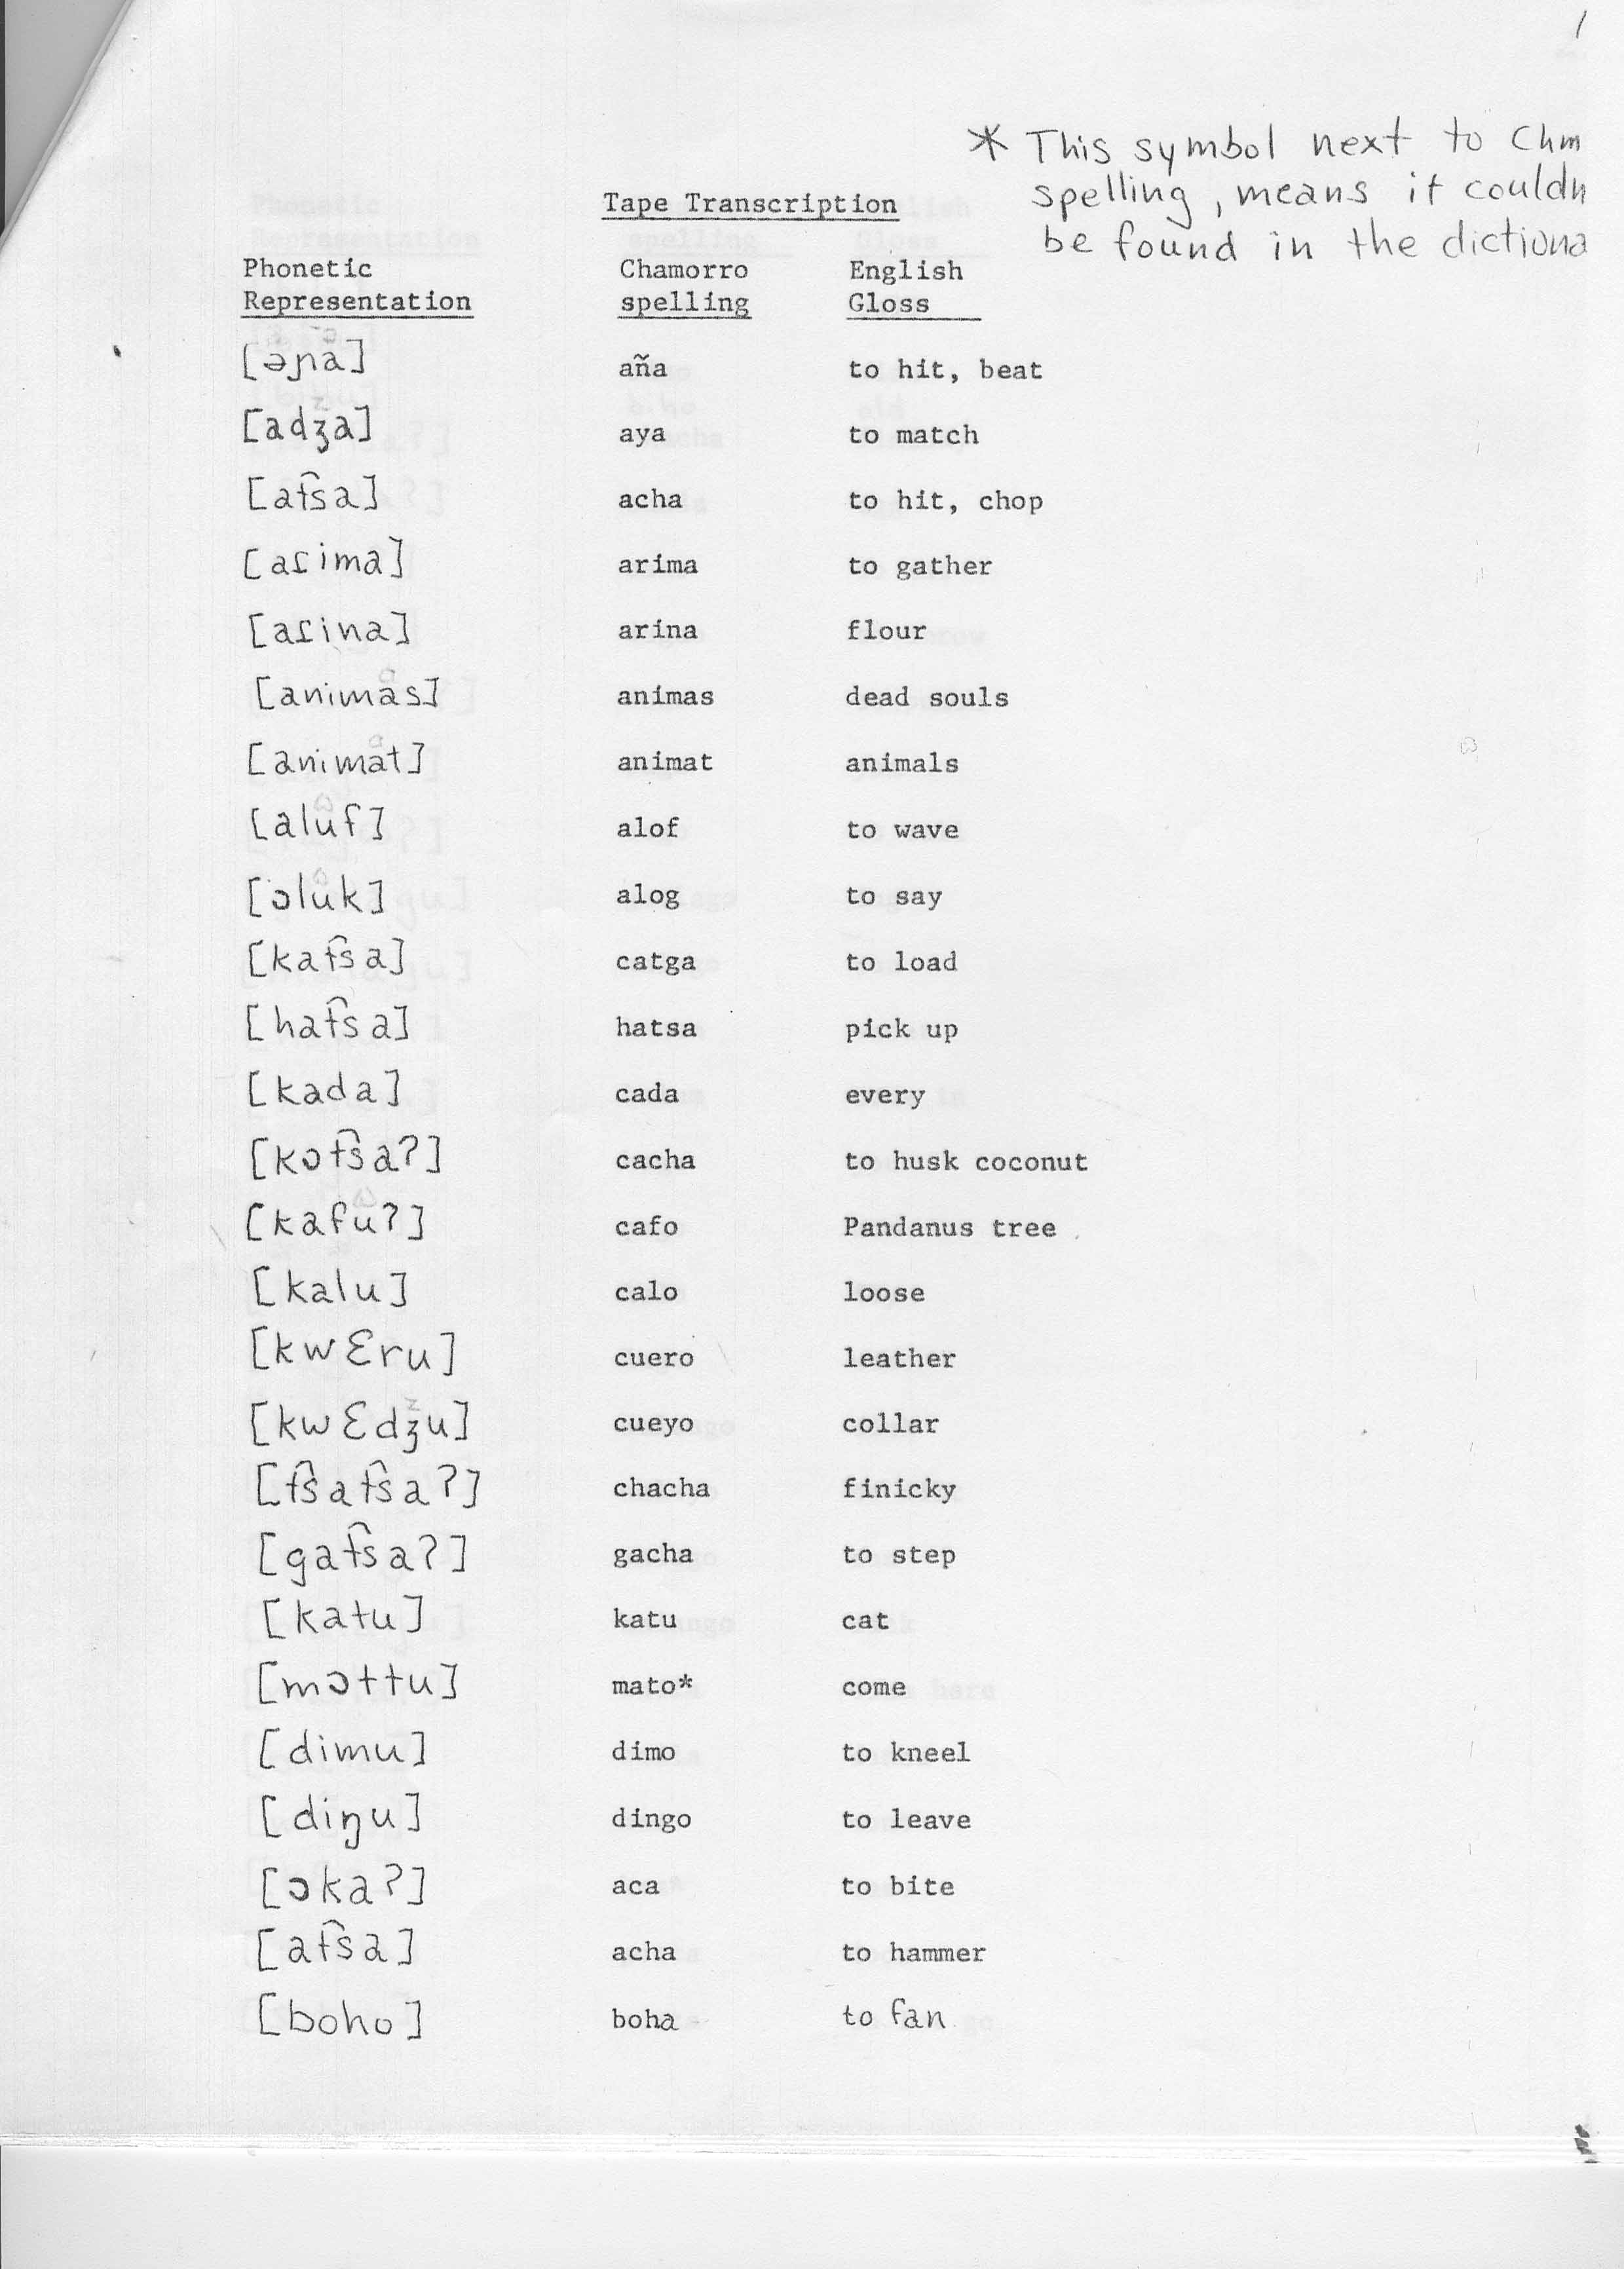 1
* This symbol next to Chm
spelling, means it couldn
be found in the dictiona
Tape Transcription
Phonetic Chamorro English
Representation spelling Gloss
[əɲa] aña to hit, beat
[adʒa] aya to match
[at͡sa] acha to hit, chop
[aɾima] arima to gather
[aɾina] arina flour
[animas] animas dead souls
[animat] animat animals
[aluf] alof to wave
[ɔluk] alog to say
[kat͡sa] catga to load
[hat͡sa] hatsa pick up
[kada] cada every
[kɔt͡saʔ] cacha to husk coconut
[kafuʔ] cafo Pandanus tree
[kalu] calo loose
[kwɛru] cuero leather
[kwɛdʒu] cueyo collar
[t͡sat͡saʔ] chacha finicky
[gat͡saʔ] gacha to step
[katu] katu cat
[mɔttu] mato* come
[dimu] dimo to kneel
[diŋu] dingo to leave
[ɔkaʔ] aca to bite
[at͡sa] acha to hammer
[boho] boha to fan